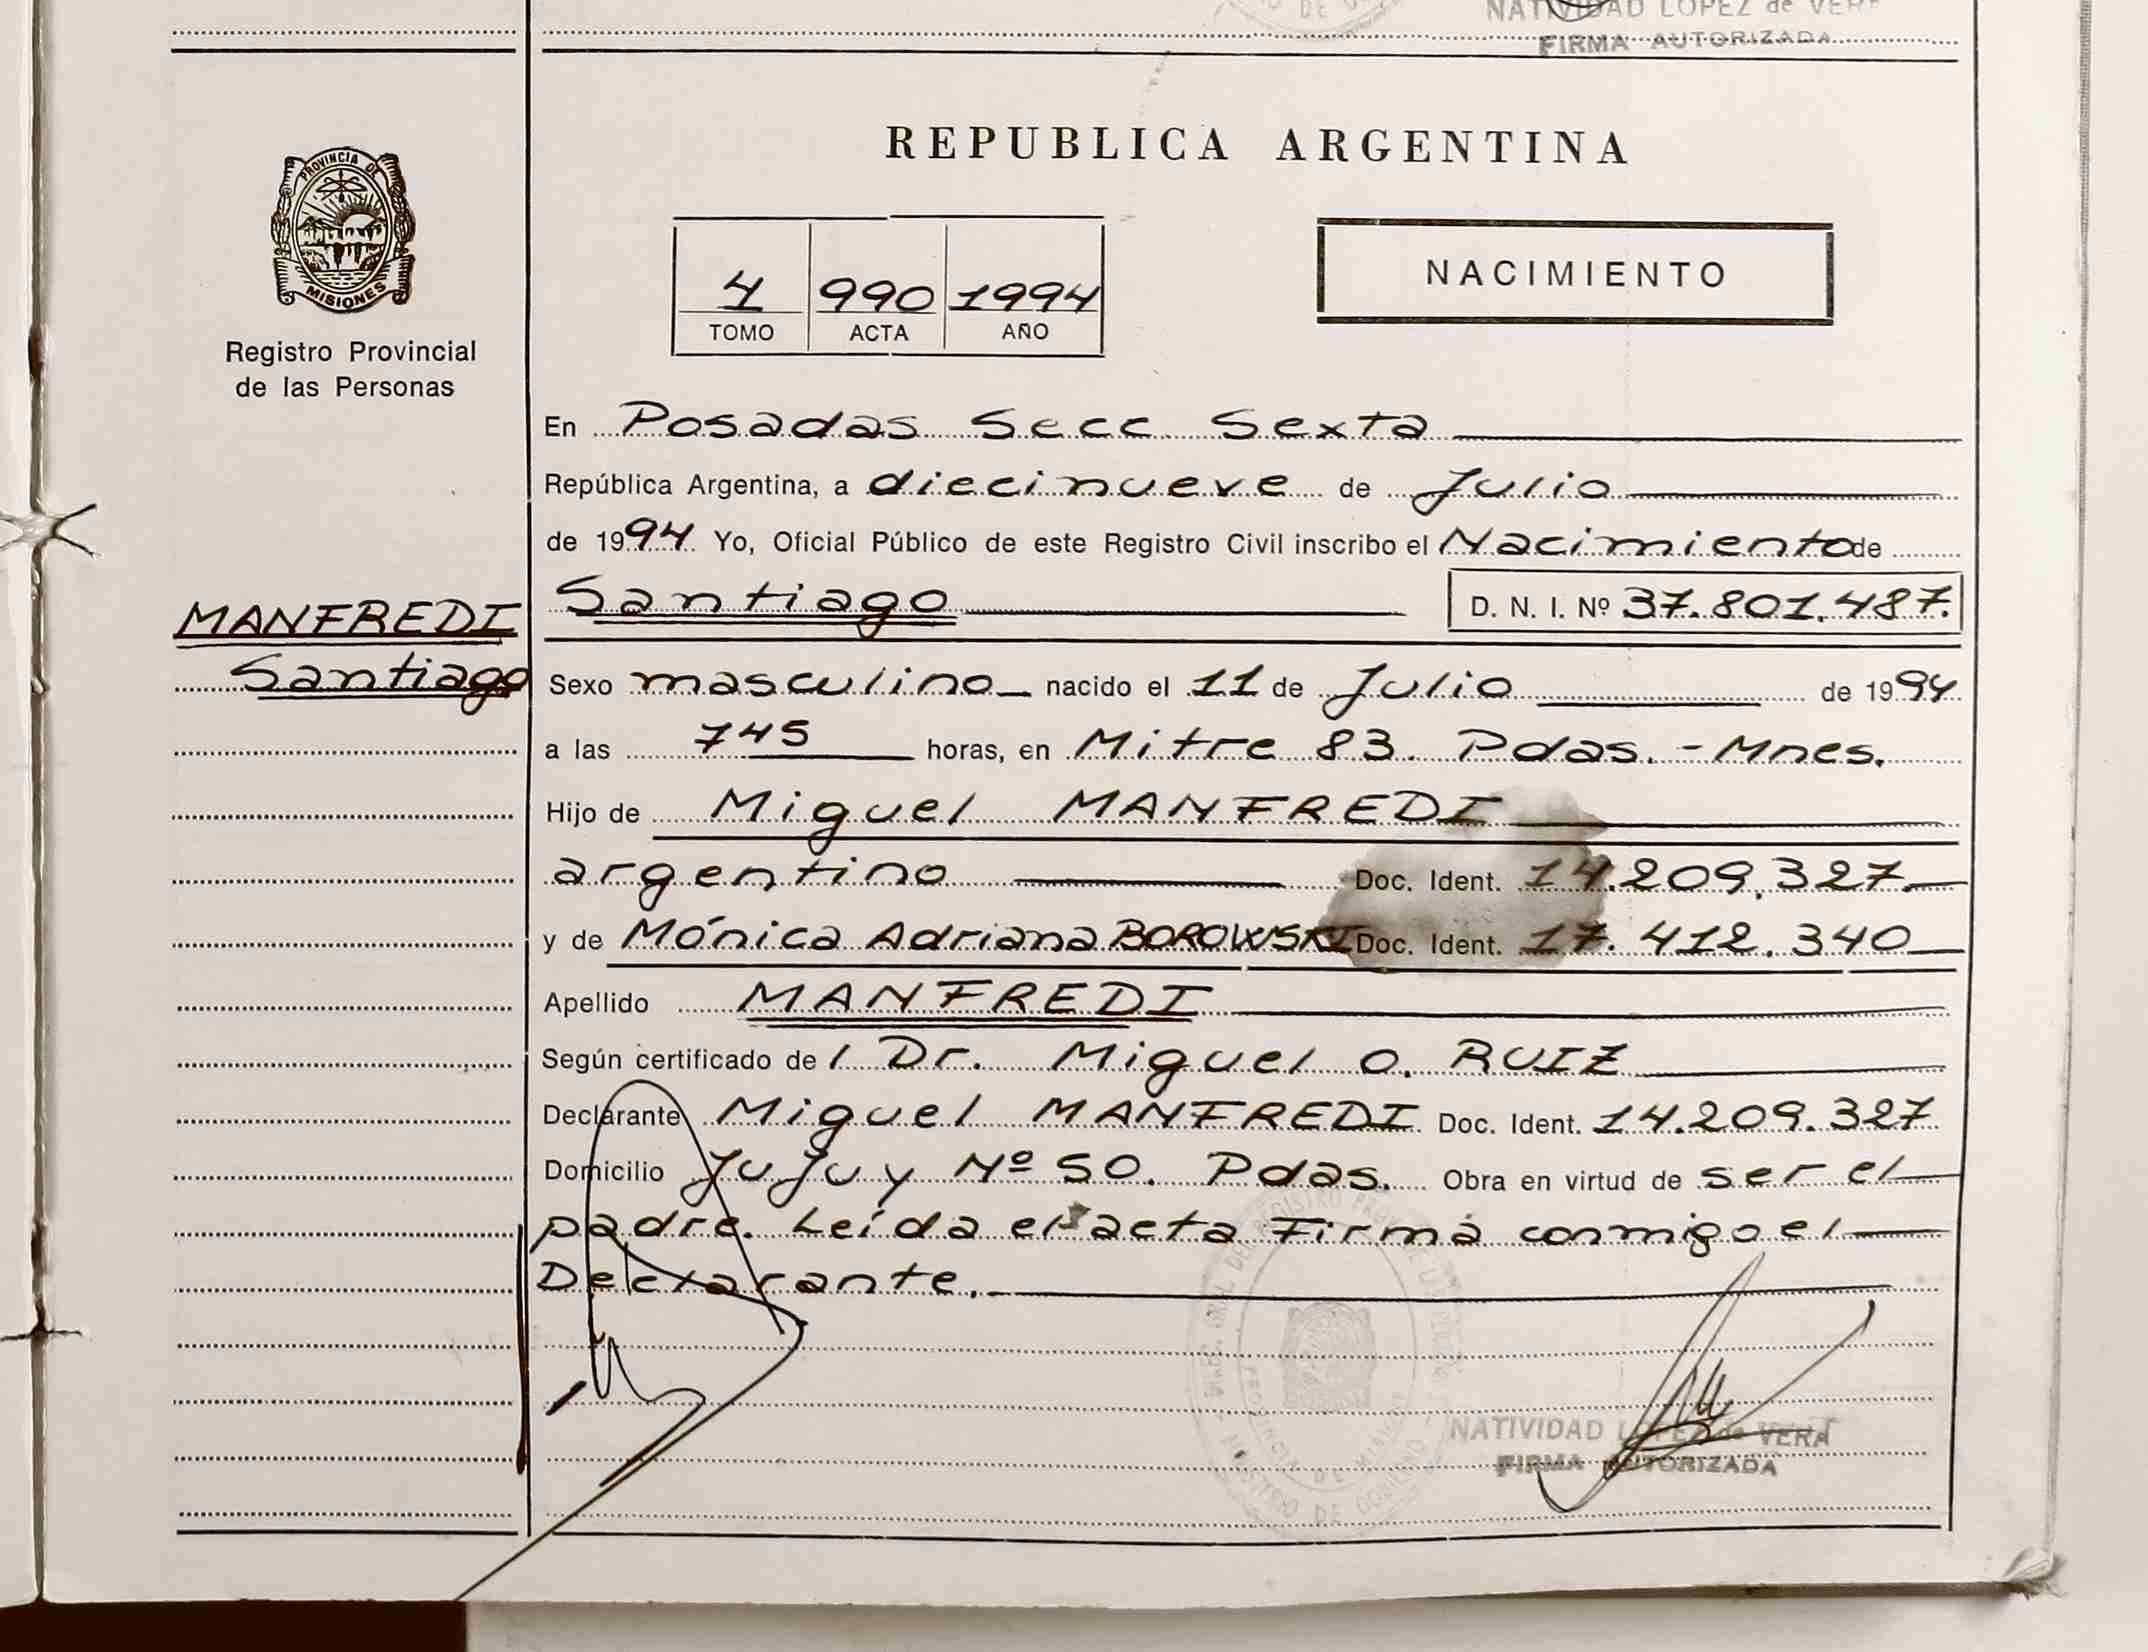 NATIVIDAD LOPEZ de VERA
FIRMA AUTORIZADA
PROVINCIA DE
MISIONES
Registro Provincial
de las Personas
REPUBLICA ARGENTINA
4 990 1994
TOMO ACTA AÑO
NACIMIENTO
En Posadas Secc Sexta
República Argentina, a diecinueve de Julio
de 1994 Yo, Oficial Público de este Registro Civil inscribo el Nacimiento de
MANFREDI
Santiago
Santiago D. N. I. Nº 37.801.487.
Sexo masculino nacido el 11 de Julio de 1994
a las 745 horas, en Mitre 83. Pdas. - Mnes.
Hijo de Miguel MANFREDI
argentino Doc. Ident. 14.209.327.
y de Mónica Adriana BOROWSKI Doc. Ident. 17.412.340
Apellido MANFREDI
Según certificado de l Dr. Miguel O. RUIZ
Declarante Miguel MANFREDI Doc. Ident. 14.209.327
Domicilio JuJuy Nº 50. Pdas. Obra en virtud de ser el
padre. Leída el acta Firma conmigo el
Declarante.
NATIVIDAD LOPEZ de VERA
FIRMA AUTORIZADA